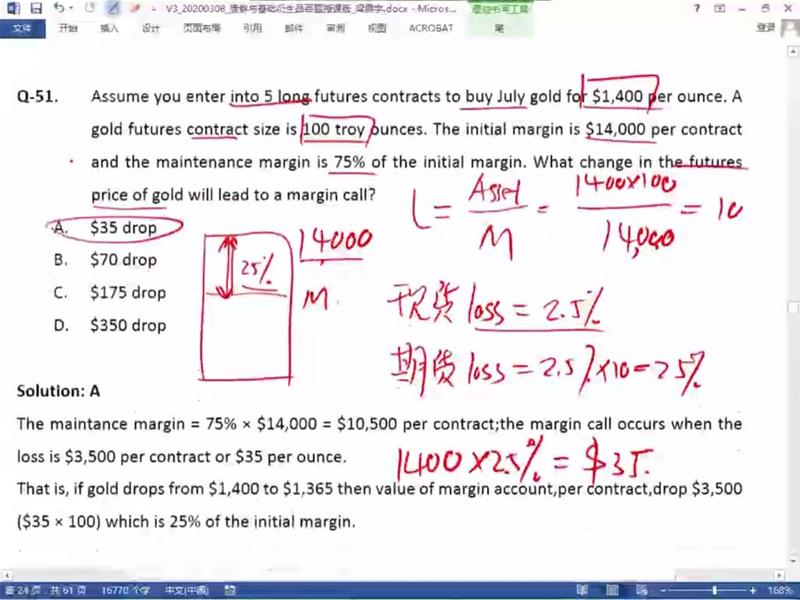 V3_20200308_债券与基础衍生品百题授课版_梁震宇.docx - Micros...
文件 开始 插入 设计 页面布局 引用 邮件 审阅 视图 ACROBAT 笔 登录
Q-51. Assume you enter into 5 long futures contracts to buy July gold for $1,400 per ounce. A
gold futures contract size is 100 troy ounces. The initial margin is $14,000 per contract
and the maintenance margin is 75% of the initial margin. What change in the futures
price of gold will lead to a margin call?
L = Asset / M = 1400×100 / 14,000 = 10
A. $35 drop
B. $70 drop
C. $175 drop
D. $350 drop
14000
25%
M
现货 loss = 2.5%
期货 loss = 2.5%×10=25%
Solution: A
The maintance margin = 75% × $14,000 = $10,500 per contract;the margin call occurs when the
loss is $3,500 per contract or $35 per ounce.
1400×2.5% = $35.
That is, if gold drops from $1,400 to $1,365 then value of margin account,per contract,drop $3,500
($35 × 100) which is 25% of the initial margin.
第 24 页，共 61 页 16770 个字 中文(中国) 168%